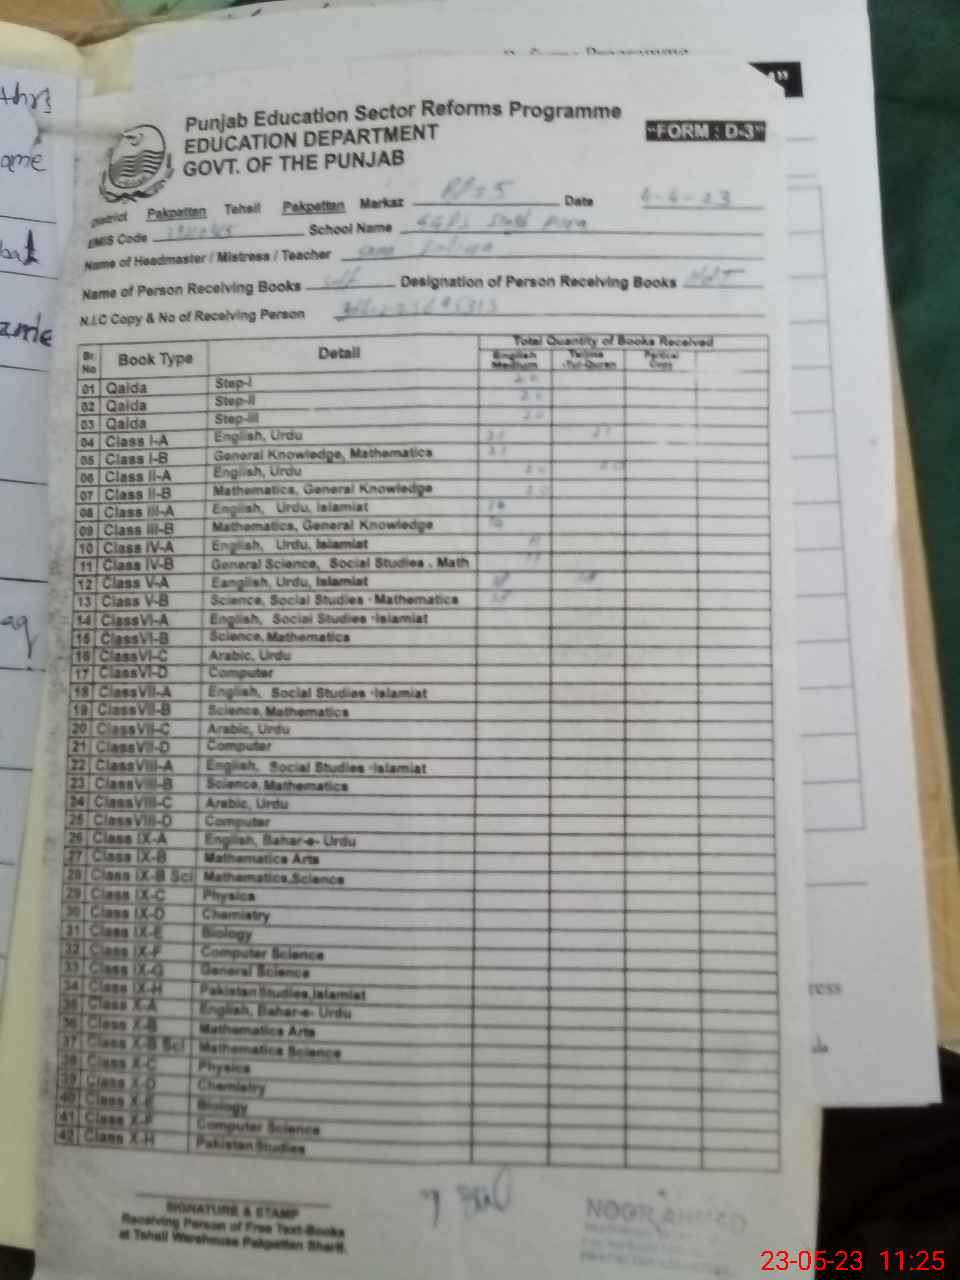 Programme
Punjab Education Sector Reforms Programme
EDUCATION DEPARTMENT
GOVT. OF THE PUNJAB
"FORM : D-3"
District Pakpattan Tehsil Pakpattan Markaz Date 4-4-23
EMIS Code School Name
Name of Headmaster / Mistress / Teacher
Name of Person Receiving Books self Designation of Person Receiving Books
N.I.C Copy & No of Receiving Person
Sr. No Book Type Detail Total Quantity of Books Received
English Medium Tarjma-Tul-Quran Partical Copy
01 Qaida Step-I 20
02 Qaida Step-II 20
03 Qaida Step-III 20
04 Class I-A English, Urdu 21 21
05 Class I-B General Knowledge, Mathematics 21
06 Class II-A English, Urdu 20 20
07 Class II-B Mathematics, General Knowledge 20
08 Class III-A English, Urdu, Islamiat
09 Class III-B Mathematics, General Knowledge
10 Class IV-A English, Urdu, Islamiat 11
11 Class IV-B General Science, Social Studies , Math 11
12 Class V-A Eanglish, Urdu, Islamiat
13 Class V-B Science, Social Studies -Mathematics
14 ClassVI-A English, Social Studies -Islamiat
15 ClassVI-B Science, Mathematics
16 ClassVI-C Arabic, Urdu
17 ClassVI-D Computer
18 ClassVII-A English, Social Studies -Islamiat
19 ClassVII-B Science, Mathematics
20 ClassVII-C Arabic, Urdu
21 ClassVII-D Computer
22 ClassVIII-A English, Social Studies -Islamiat
23 ClassVIII-B Science, Mathematics
24 ClassVIII-C Arabic, Urdu
25 ClassVIII-D Computer
26 Class IX-A English, Bahar-e- Urdu
27 Class IX-B Mathematics Arts
28 Class IX-B Sci Mathematics,Science
29 Class IX-C Physics
30 Class IX-D Chemistry
31 Class IX-E Biology
32 Class IX-F Computer Science
33 Class IX-G General Science
34 Class IX-H Pakistan Studies,Islamiat
35 Class X-A English, Bahar-e- Urdu
36 Class X-B Mathematics Arts
37 Class X-B Sci Mathematics Science
38 Class X-C Physics
39 Class X-D Chemistry
40 Class X-E Biology
41 Class X-F Computer Science
42 Class X-H Pakistan Studies
SIGNATURE & STAMP
Receiving Person of Free Text-Books
at Tehsil Warehouse Pakpattan Sharif.
NOOR AHMAD
23-05-23 11:25